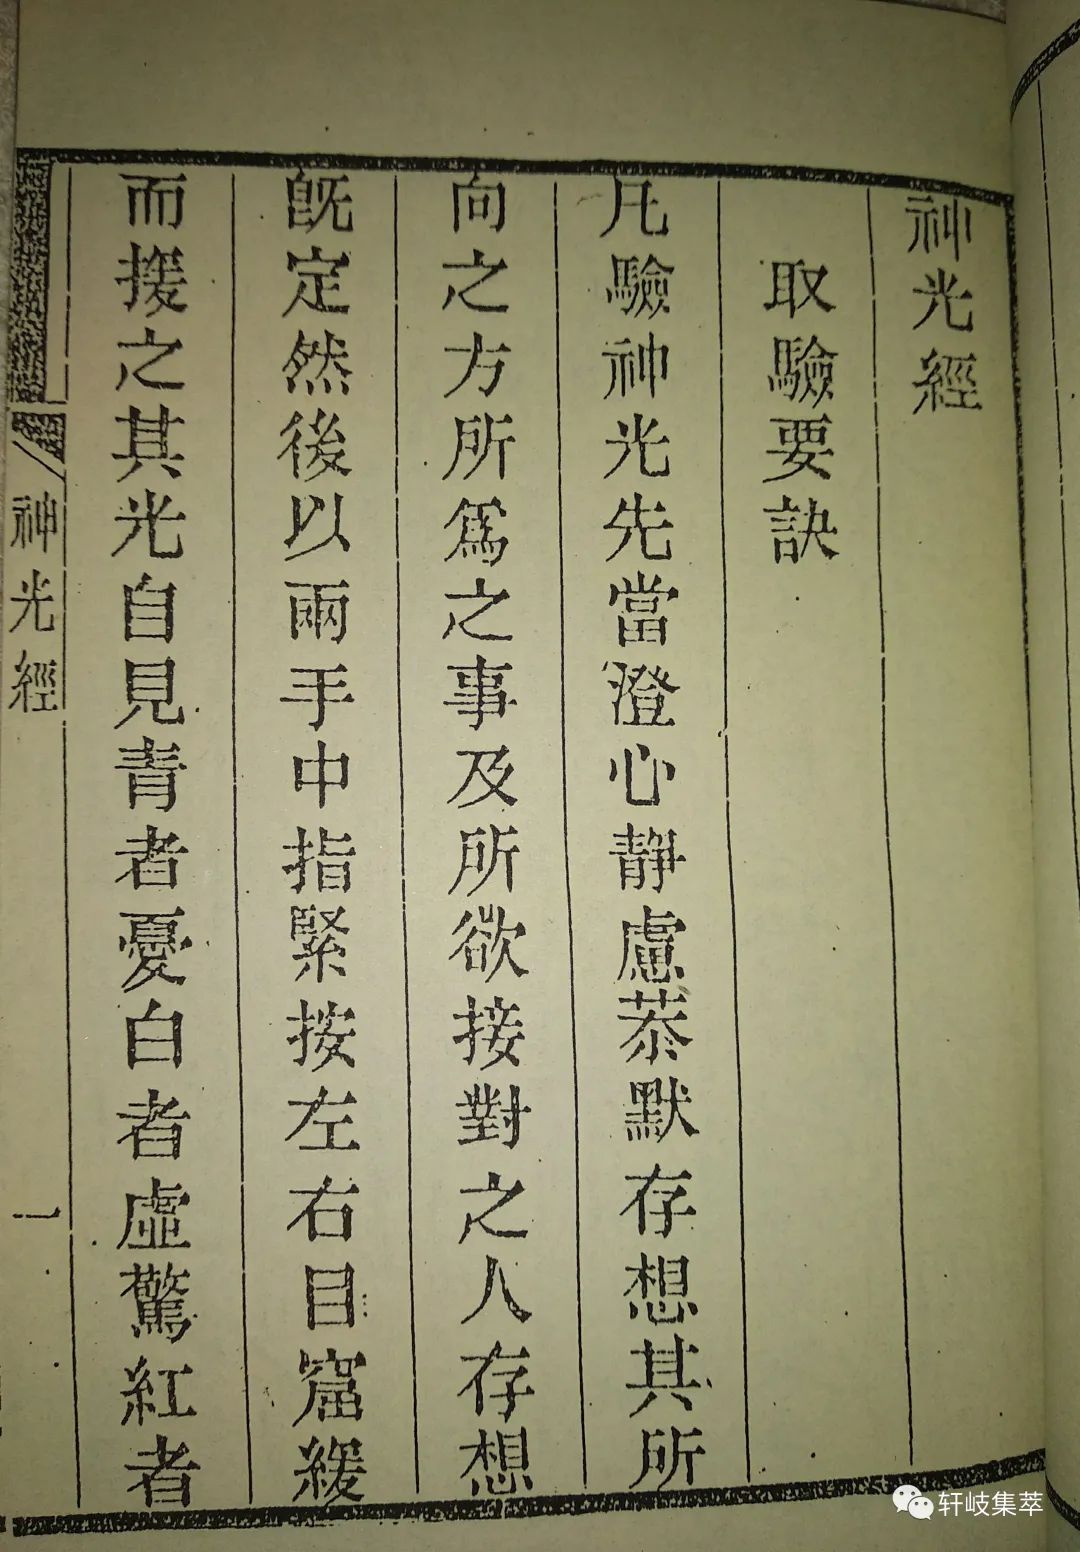 神光經
取驗要訣
凡驗神光先當澄心靜慮恭默存想其所
向之方所爲之事及所欲接對之人存想
旣定然後以兩手中指緊按左右目窟緩
而援之其光自見青者憂白者虛驚紅者
神光經
一
轩岐集萃